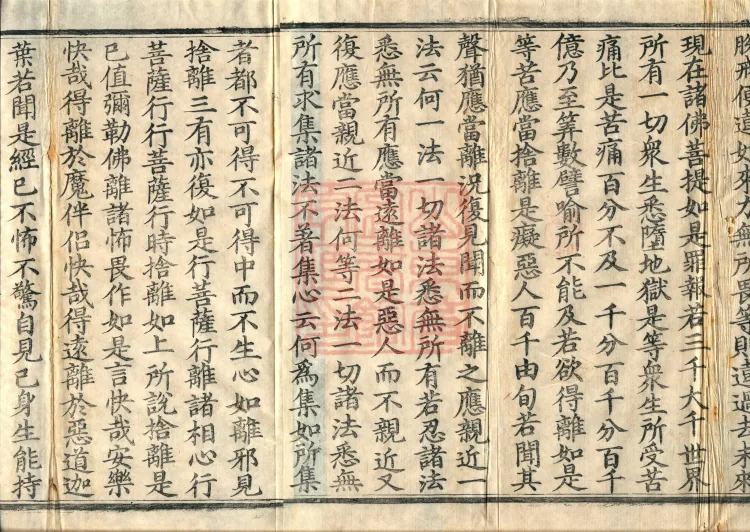 現在諸佛菩提如是罪報若三千大千世界
所有一切衆生悉墮地獄是等衆生所受苦
痛比是苦痛百分不及一千分百千分百千
億乃至筭數譬喻所不能及若欲得離如是
等苦應當捨離是癡惡人百千由旬若聞其
聲猶應當離況復見聞而不離之應親近一
法云何一法一切諸法悉無所有若忍諸法
悉無所有應當遠離如是惡人而不親近又
復應當親近二法何等二法一切諸法悉無
所有求集諸法不著集心云何爲集如所集
者都不可得不可得中而不生心如離邪見
捨離三有亦復如是行菩薩行離諸相心行
菩薩行行菩薩行時捨離如上所說捨離是
已值彌勒佛離諸怖畏作如是言快哉安樂
快哉得離於魔伴侶快哉得遠離於惡道迦
葉若聞是經已不怖不驚自見己身生能持